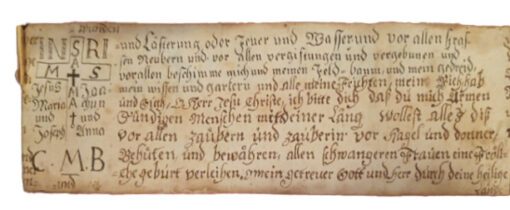 INSRI
M S
Jesus
Maria
und
Joseph
Joa=
quin
und
Anna
C. M. B
und
-und Lästerung oder Feuer und Wasser und vor allen
Reubern und vor allen vergiftungen und vergebunen und
vor allen beschirme mich und meinen Feld-baum und mein getreid,
mein wissen und garten und alle meine Früchten, mein
und O Herr Jesu Christe, ich bitte dich daß du mich Armen
Sündigen Menschen mit deiner wollest alles diß
vor allen Zaubern und Zauberin vor Hagel und donner,
Behüten und bewahren, allen schwangeren Frauen eine Fröli=
=che geburt verleihen, O mein getreuer Gott und Herr durch deine heilige